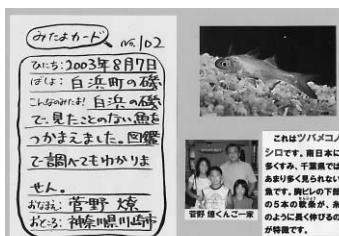 みたよカード No.102
ひにち:2003年8月7日
ばしょ:白浜町の磯
こんなのみたよ!白浜の磯
で見たことのない魚を
つかまえました。図鑑
で調べてもわかりま
せん。
おなまえ:菅野 燎
おところ:神奈川県川崎市
菅野 燎くんご一家
これはツバメコノ
シロです。南日本に
多くすみ、千葉県では
あまり多く見られない
魚です。胸ビレの下部
の5本の軟条が、糸
のように長く伸びるの
が特徴です。